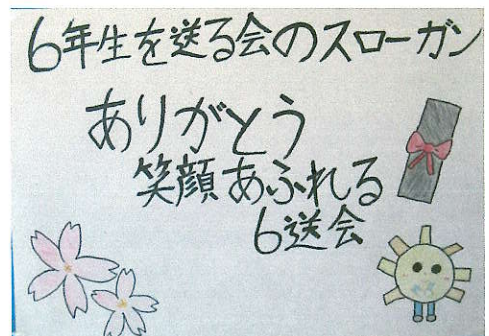 6年生を送る会のスローガン
ありがとう
笑顔あふれる
6送会